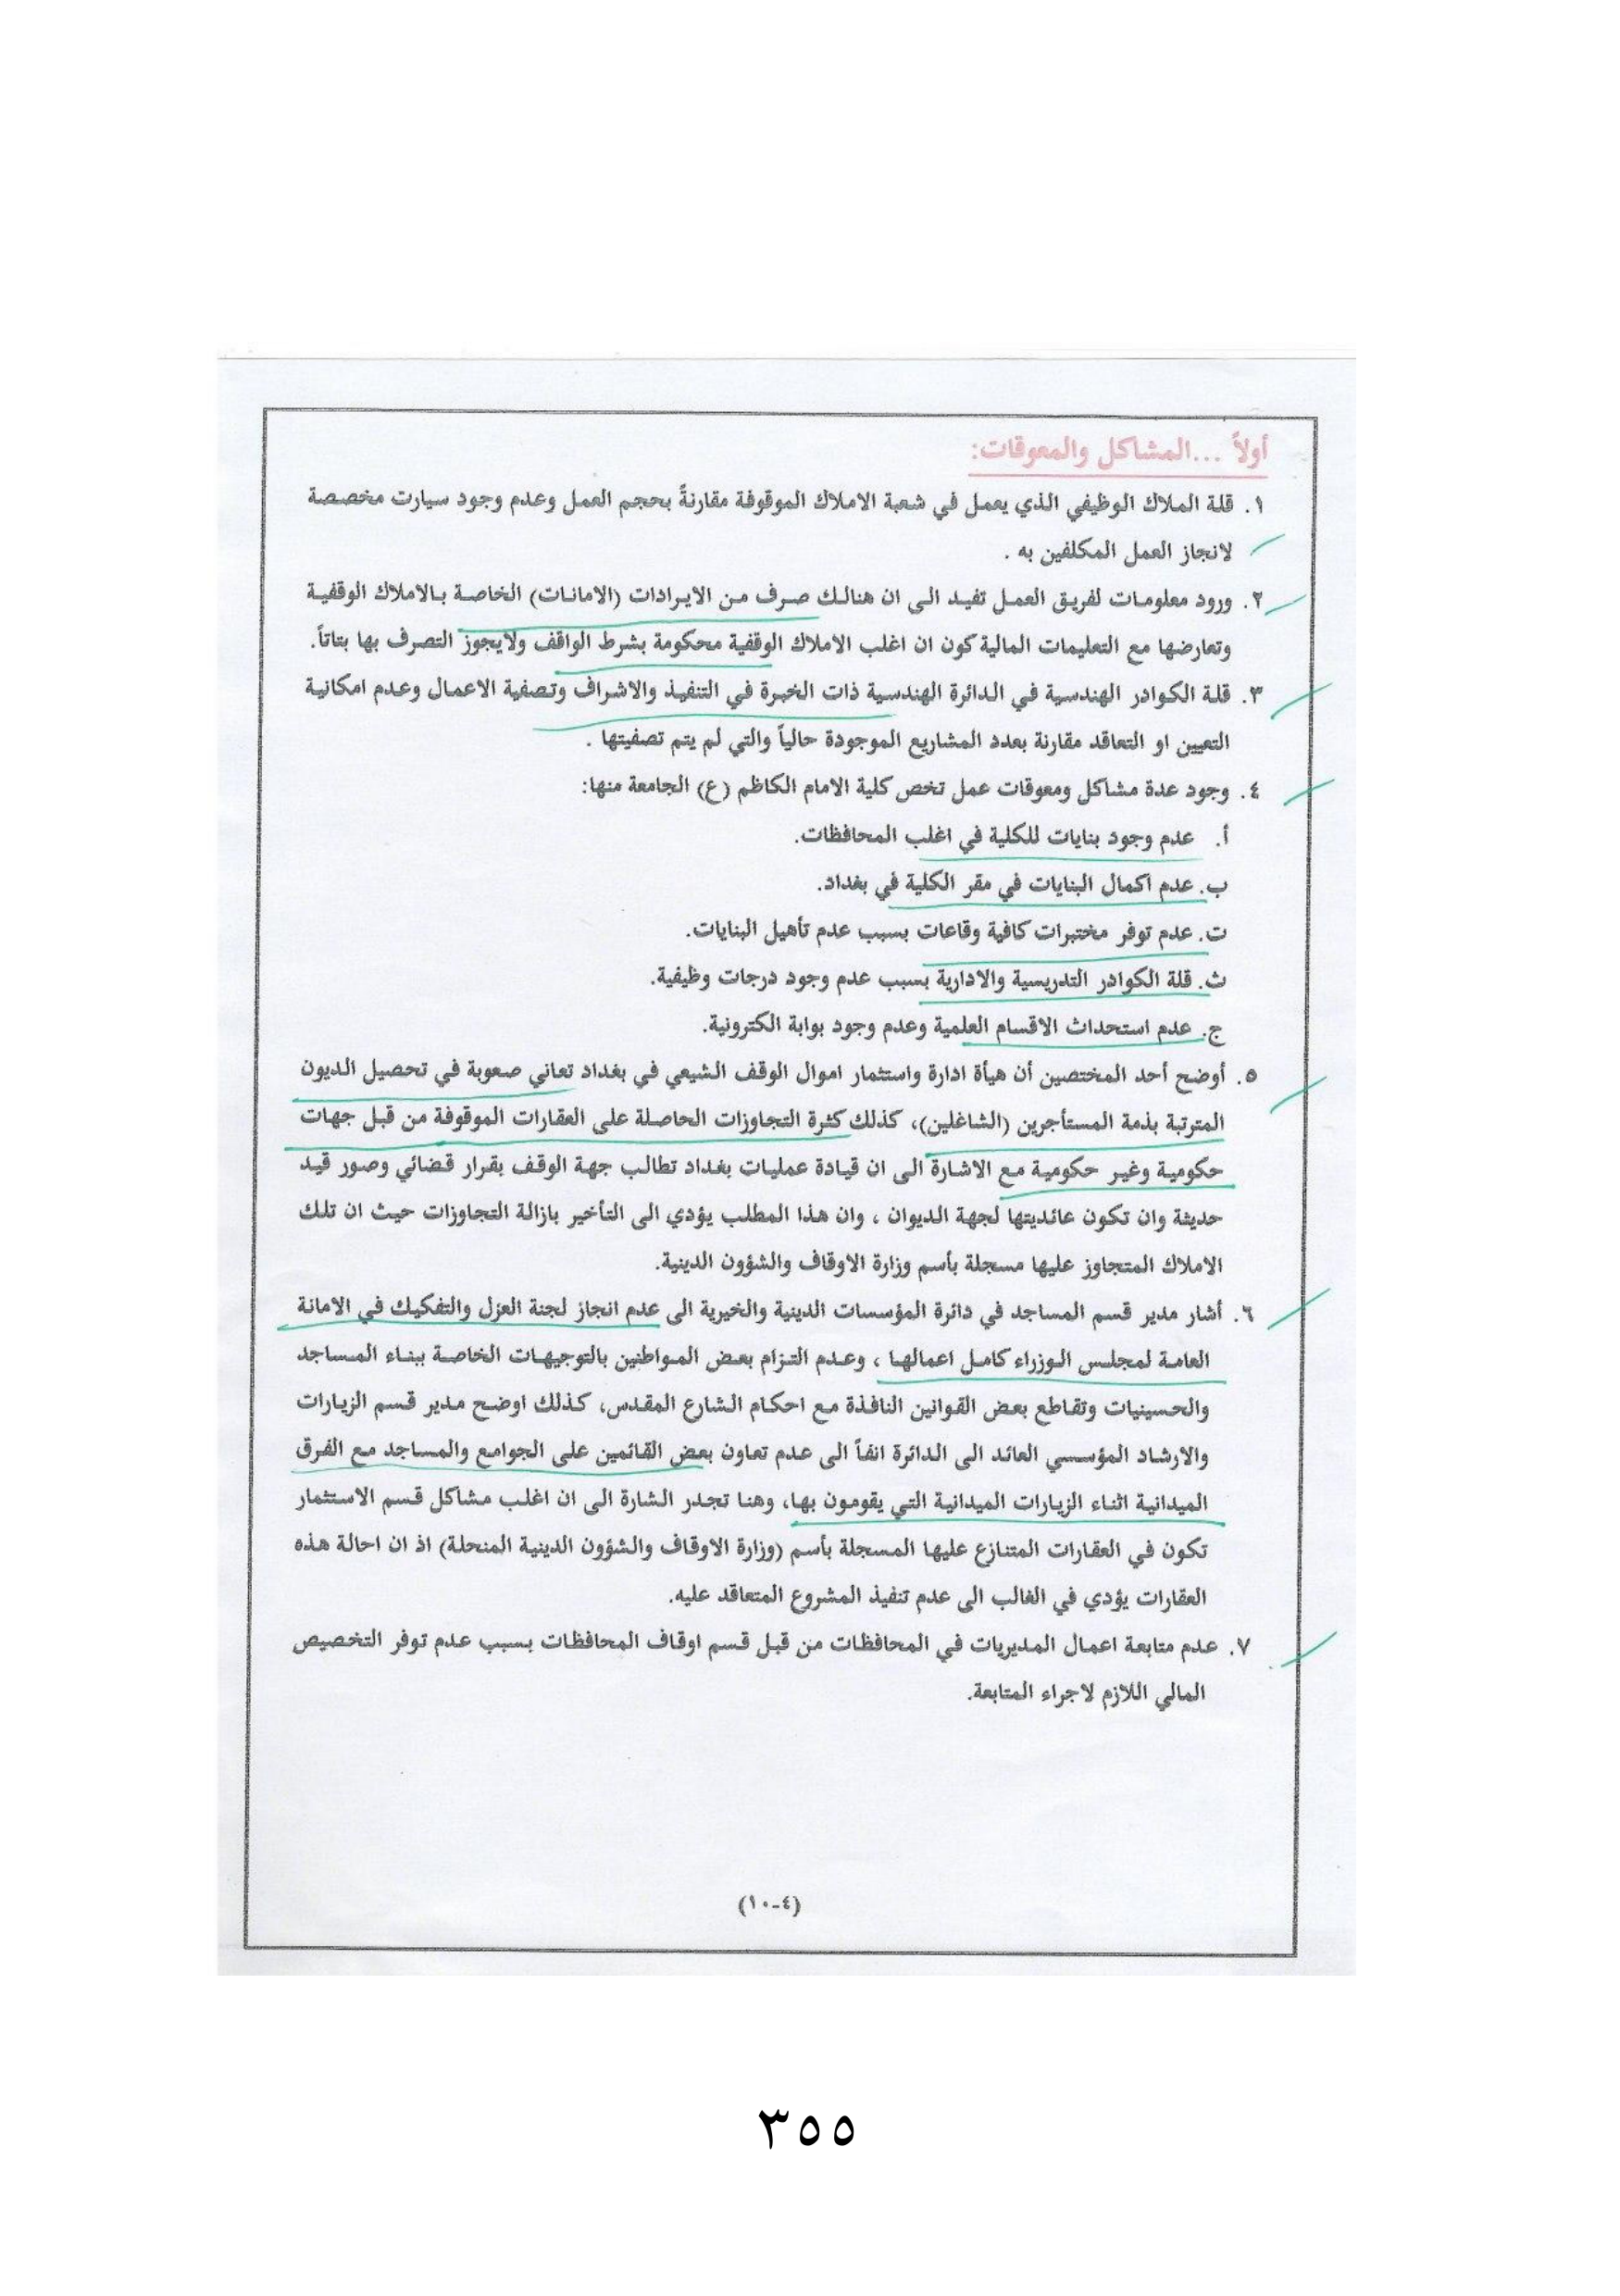 أولاً ...المشاكل والمعوقات:
١. قلة الملاك الوظيفي الذي يعمل في شعبة الاملاك الموقوفة مقارنةً بحجم العمل وعدم وجود سيارت مخصصة
لانجاز العمل المكلفين به .
٢. ورود معلومات لفريق العمل تفيد الى ان هنالك صرف من الايرادات (الامانات) الخاصة بالاملاك الوقفية
وتعارضها مع التعليمات المالية كون ان اغلب الاملاك الوقفية محكومة بشرط الواقف ولايجوز التصرف بها بتاتاً.
٣. قلة الكوادر الهندسية في الدائرة الهندسية ذات الخبرة في التنفيذ والاشراف وتصفية الاعمال وعدم امكانية
التعيين او التعاقد مقارنة بعدد المشاريع الموجودة حالياً والتي لم يتم تصفيتها .
٤. وجود عدة مشاكل ومعوقات عمل تخص كلية الامام الكاظم (ع) الجامعة منها:
أ. عدم وجود بنايات للكلية في اغلب المحافظات.
ب. عدم اكمال البنايات في مقر الكلية في بغداد.
ت. عدم توفر مختبرات كافية وقاعات بسبب عدم تأهيل البنايات.
ث. قلة الكوادر التدريسية والادارية بسبب عدم وجود درجات وظيفية.
ج. عدم استحداث الاقسام العلمية وعدم وجود بوابة الكترونية.
٥. أوضح أحد المختصين أن هيأة ادارة واستثمار اموال الوقف الشيعي في بغداد تعاني صعوبة في تحصيل الديون
المترتبة بذمة المستأجرين (الشاغلين)، كذلك كثرة التجاوزات الحاصلة على العقارات الموقوفة من قبل جهات
حكومية وغير حكومية مع الاشارة الى ان قيادة عمليات بغداد تطالب جهة الوقف بقرار قضائي وصور قيد
حديثة وان تكون عائديتها لجهة الديوان ، وان هذا المطلب يؤدي الى التأخير بازالة التجاوزات حيث ان تلك
الاملاك المتجاوز عليها مسجلة بأسم وزارة الاوقاف والشؤون الدينية.
٦. أشار مدير قسم المساجد في دائرة المؤسسات الدينية والخيرية الى عدم انجاز لجنة العزل والتفكيك في الامانة
العامة لمجلس الوزراء كامل اعمالها ، وعدم التزام بعض المواطنين بالتوجيهات الخاصة ببناء المساجد
والحسينيات وتقاطع بعض القوانين النافذة مع احكام الشارع المقدس، كذلك اوضح مدير قسم الزيارات
والارشاد المؤسسي العائد الى الدائرة انفاً الى عدم تعاون بعض القائمين على الجوامع والمساجد مع الفرق
الميدانية اثناء الزيارات الميدانية التي يقومون بها، وهنا تجدر الشارة الى ان اغلب مشاكل قسم الاستثمار
تكون في العقارات المتنازع عليها المسجلة بأسم (وزارة الاوقاف والشؤون الدينية المنحلة) اذ ان احالة هذه
العقارات يؤدي في الغالب الى عدم تنفيذ المشروع المتعاقد عليه.
٧. عدم متابعة اعمال المديريات في المحافظات من قبل قسم اوقاف المحافظات بسبب عدم توفر التخصيص
المالي اللازم لاجراء المتابعة.
(٤-١٠)
٣٥٥